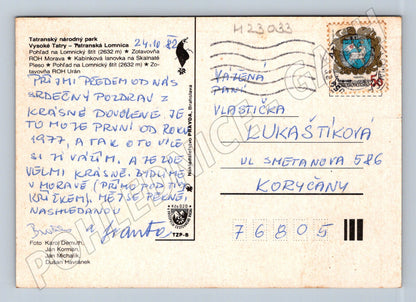 Tatranský národný park
Vysoké Tatry – Tatranská Lomnica
Pohľad na Lomnický štít (2632 m) • Zotavovňa
ROH Morava • Kabínková lanovka na Skalnaté
Pleso • Pohľad na Lomnický štít (2632 m) • Zo-
tavovňa ROH Urán
24.10.82
H23033
PŘIJMI PŘEDEM OD NÁS
SRDEČNÝ POZDRAV Z
KRÁSNÉ DOVOLENÉ. JE
TO MOJE PRVNÍ OD ROKU
1977, A TAK O TO VÍCE
SI JI VÁŽÍM. A JE ZDE
VELMI KRÁSNĚ. BYDLÍME
V MORAVĚ (PŘÍMO POD TÝM
KŘÍŽKEM). MĚJ SE PĚKNĚ,
NASHLEDANOU
a Franta
Foto: Karol Demuth,
Ján Korman,
Ján Michalík,
Dušan Havránek
TZP-B
PRAVDA, Bratislava
VÁŽENÁ
PANÍ
VLASTIČKA
LUKAŠTÍKOVÁ
UL SMETANOVA 586
KORYČANY
76805
POHLEDNICE-GALERIE